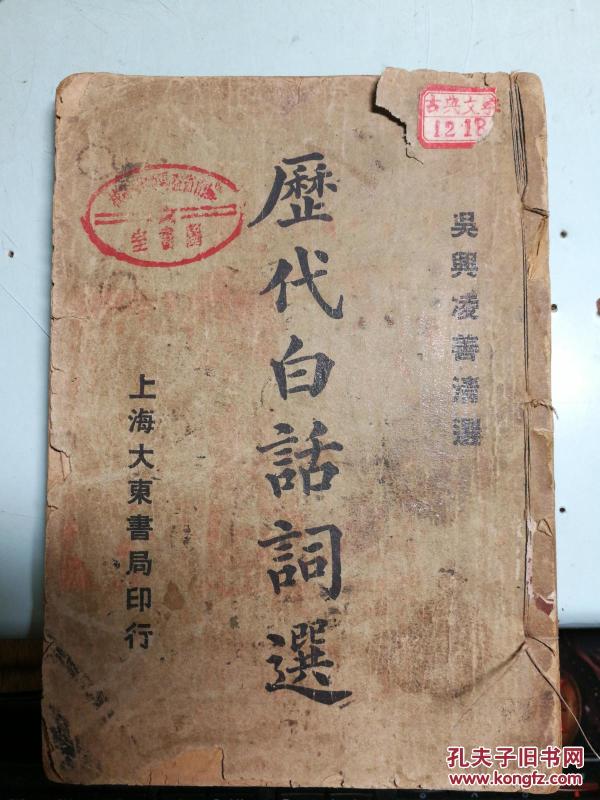 古典文学
12·18
吳興凌善清選
歷代白話詞選
上海大東書局印行
圖書室
孔夫子旧书网
www.kongfz.com